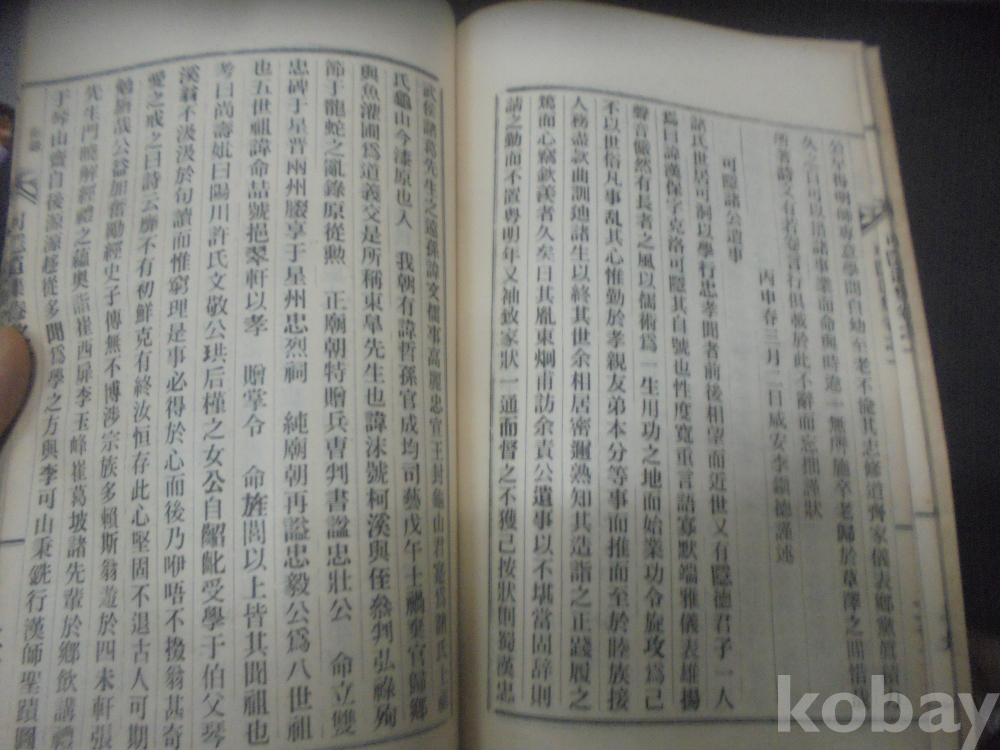 分早得明師專意學問自幼至老不渝其志修道齊家儀表鄉黨眞積
久之日可以措諸事業而命與時違一無所施卒老歸於草澤之間惜
所著詩文有若卷言行俱載於此不辭而忘拙謹狀
丙申春三月二日咸安李鎭德謹述
司隱諸公遺事
諸氏世居可洞以學行忠孝聞者前後相望而近世又有隱德君子一人
焉曰諱漢保字克洛可隱其自號也性度寬重言語寡默端雅儀表雄揚
聲音儼然有長者之風以儒術爲一生用功之地而始業功令旋攻爲己
不以世俗凡事亂其心惟勤於孝親友弟本分等事而推而至於睦族接
人務盡款曲訓廸諸生以終其世余相居密邇熟知其造詣之正踐履之
篤而心竊欽羨者久矣曰其胤東烱甫訪余責公遺事以不堪當固辞則
請之勤而不置粤明年又袖致家狀一通而督之不獲已按狀則蜀漢忠
武侯諸葛先生之遠孫諱文儒事高麗忠宣王封龜山君寔爲諸氏上祖
氏龜山今漆原也人 我朝有諱哲孫官成均司藝戊午士禍棄官歸鄉
與魚灌圃爲道義交是所稱東臯先生也諱沫號柯溪與侄叅判弘祿殉
節于龍蛇之亂錄原從勲 正廟朝特贈兵曺判書諡忠壯公 命立雙
忠碑于星晋兩州腏享于星州忠烈祠 純廟朝再諡忠毅公爲八世祖
也五世祖諱命喆號挹翠軒以孝 贈掌令 命旌閭以上皆其聞祖也
考曰尚壽妣曰陽川許氏文敬公珙后槿之女公自齠齔受學于伯父琴
溪翁不汲汲於句讀而惟窮理是事必得於心而後乃咿唔不撥翁甚奇
愛之戒之曰詩云靡不有初鮮克有終汝恒存此心堅固不退古人可期
勉旃哉公益加奮勵經史子傳無不博涉宗族多賴斯翁遊於四未軒張
先生門曉解經禮之蘊奥詣崔西扉李玉峰崔葛坡諸先輩於鄉飲講禮
于琴山齋自後源源趍從多聞爲學之方與李可山秉銑行漢師聖蹟圖
kobay